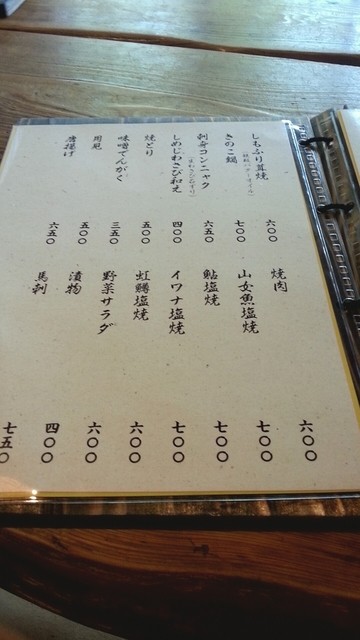 しもふり茸焼 六〇〇
きのこ鍋 七〇〇
刺身コンニャク 六五〇
しめじわさび和え 四〇〇
焼とり 五〇〇
味噌でんがく 三五〇
五〇〇
唐揚げ 六五〇
焼肉 六〇〇
山女魚塩焼 七〇〇
鮎塩焼 七〇〇
イワナ塩焼 七〇〇
虹鱒塩焼 六〇〇
野菜サラダ 六〇〇
漬物 四〇〇
馬刺 七五〇